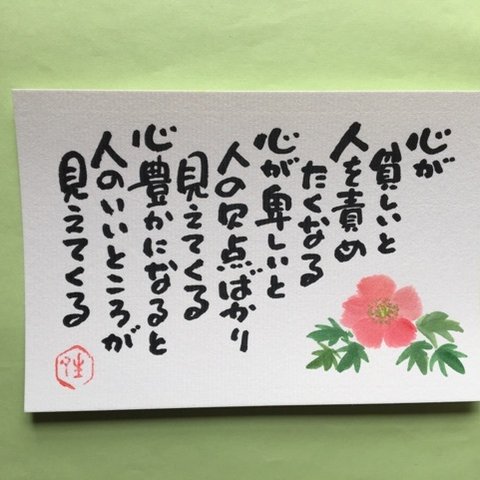 心が
貧しいと
人を責め
たくなる
心が卑しいと
人の欠点ばかり
見えてくる
心豊かになると
人のいいところが
見えてくる